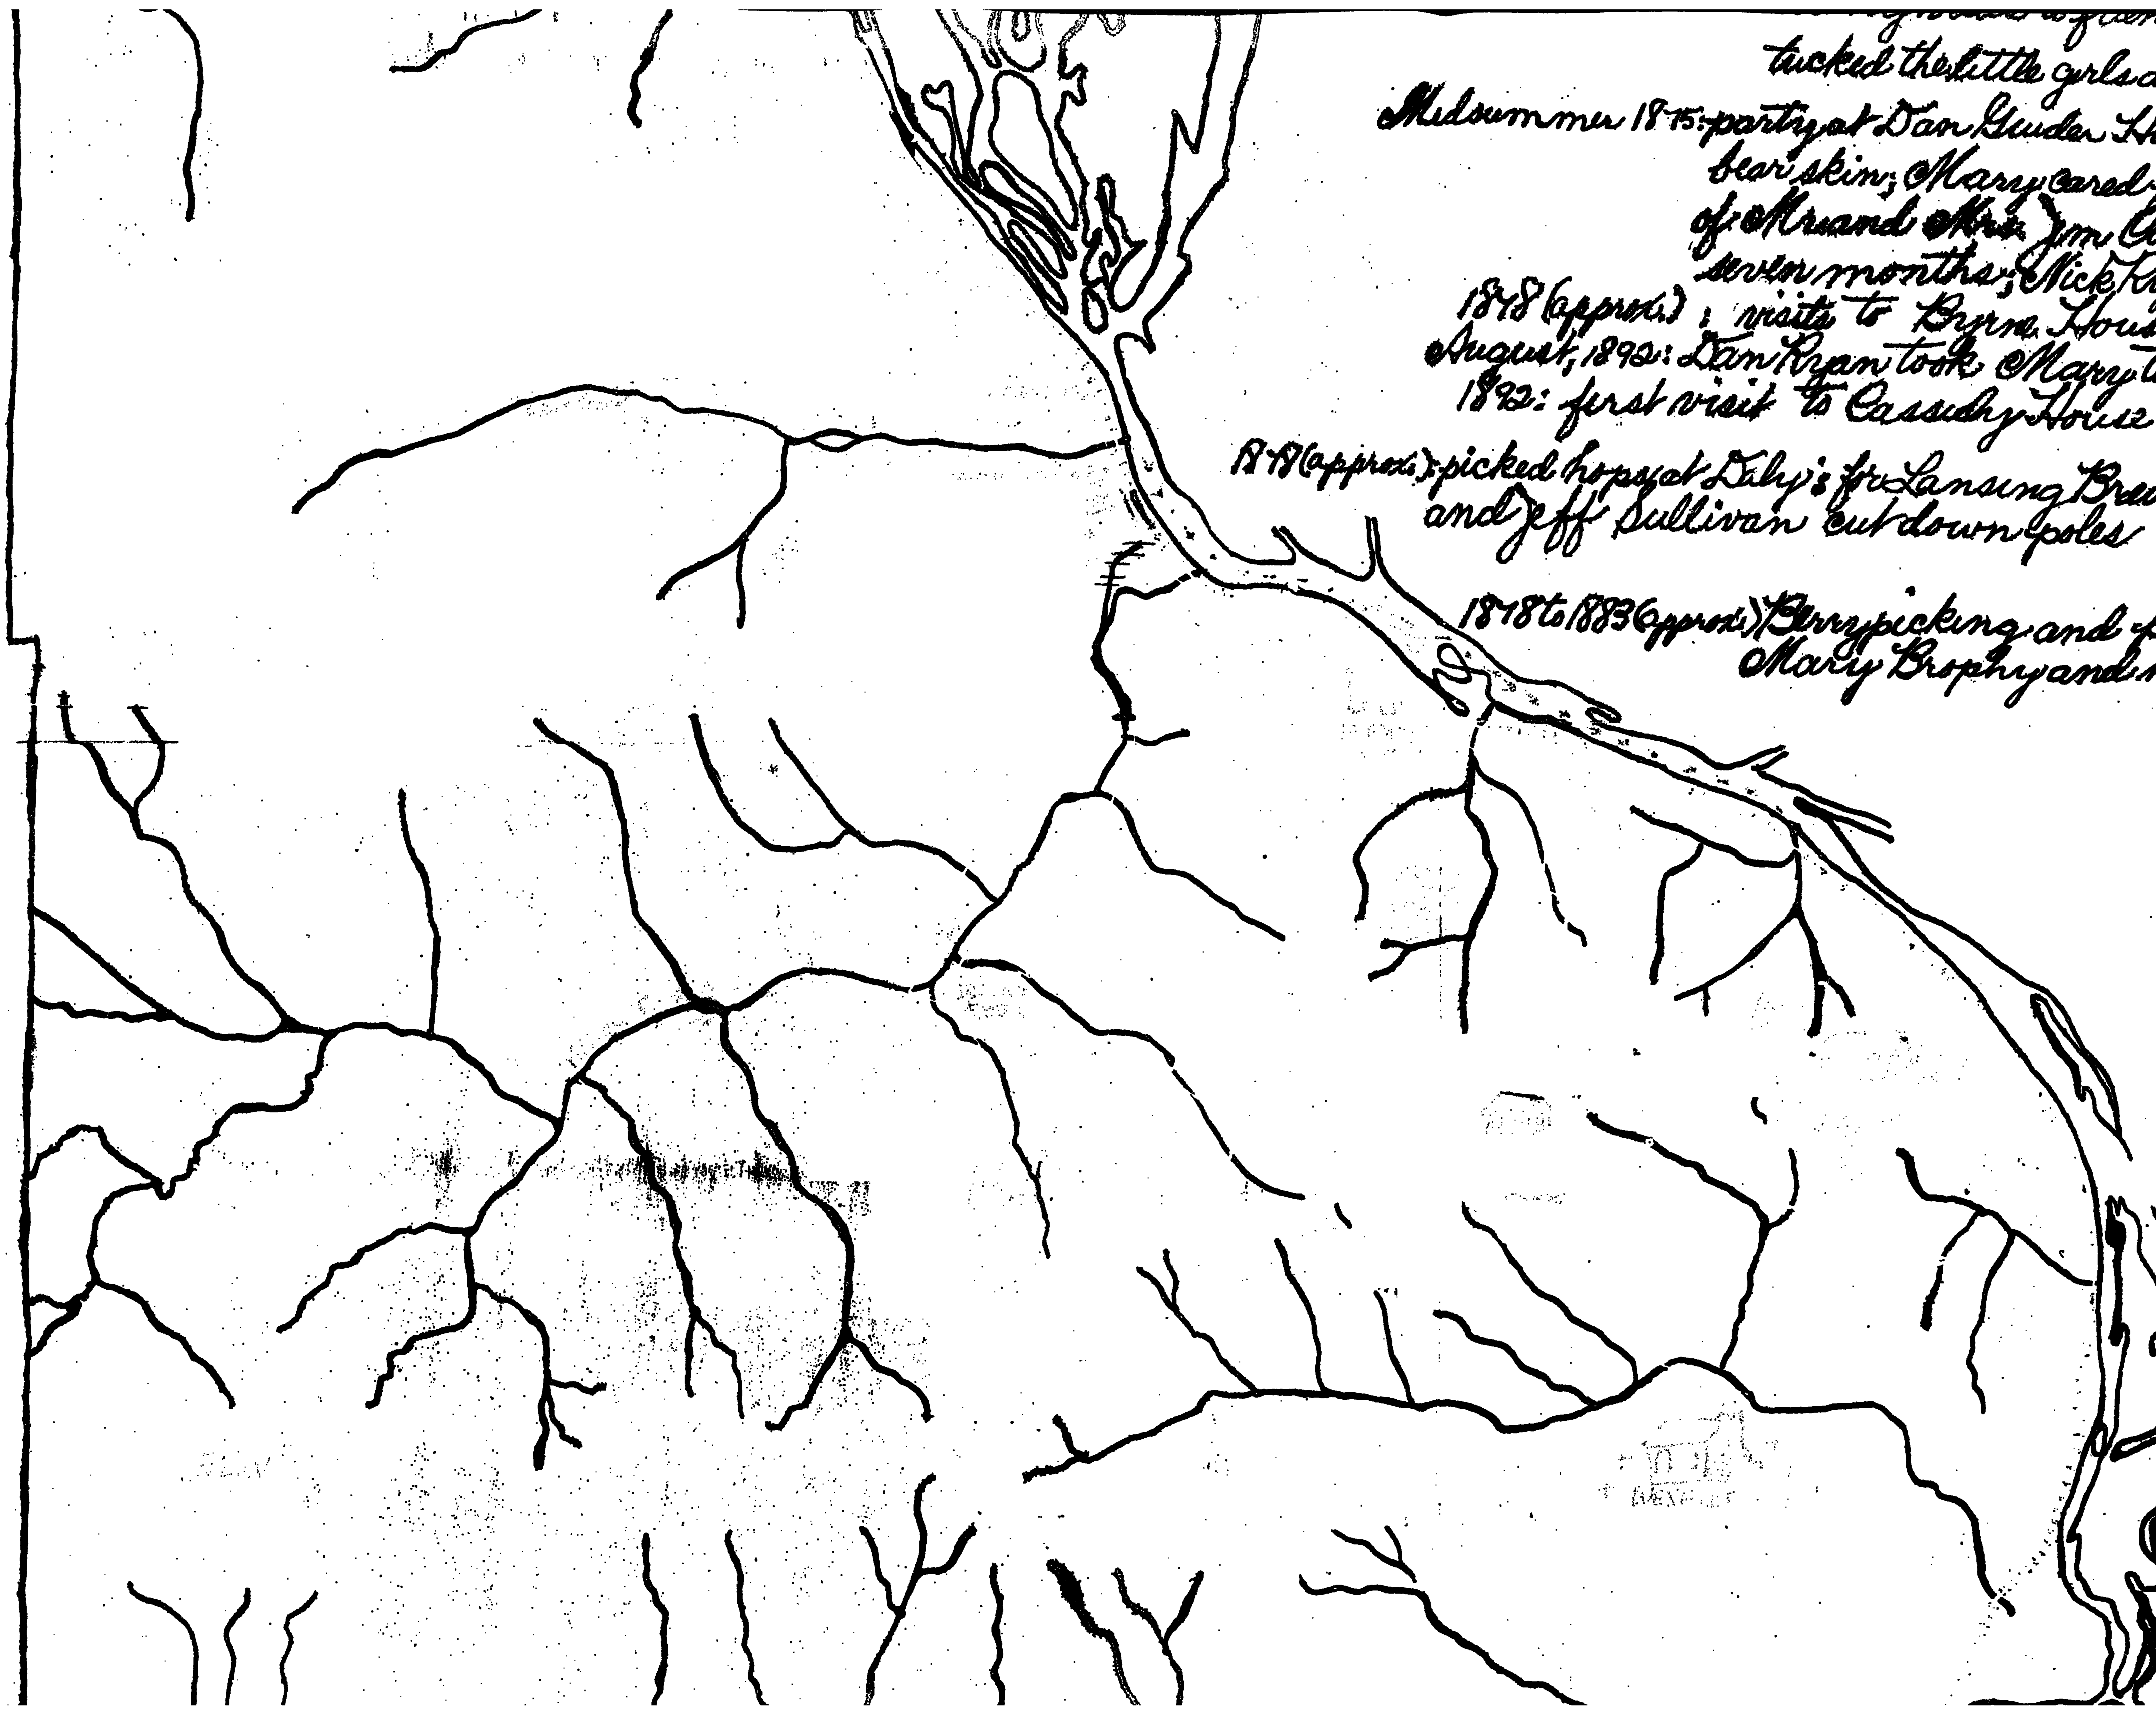 tucked the little girls
Midsummer 1875: party at Dan Guider
bear skin; Mary cared
of Mr and Mrs. Jim
seven months; Nick
1878 (approx.): visits to Byrne House
August, 1892: Dan Ryan took Mary
1892: first visit to Cassidy House
1878 (approx.): picked hops at Daly's for Lansing
and Jeff Sullivan cut down poles
1878 to 1883 (approx.) Berrypicking and
Mary Brophy and